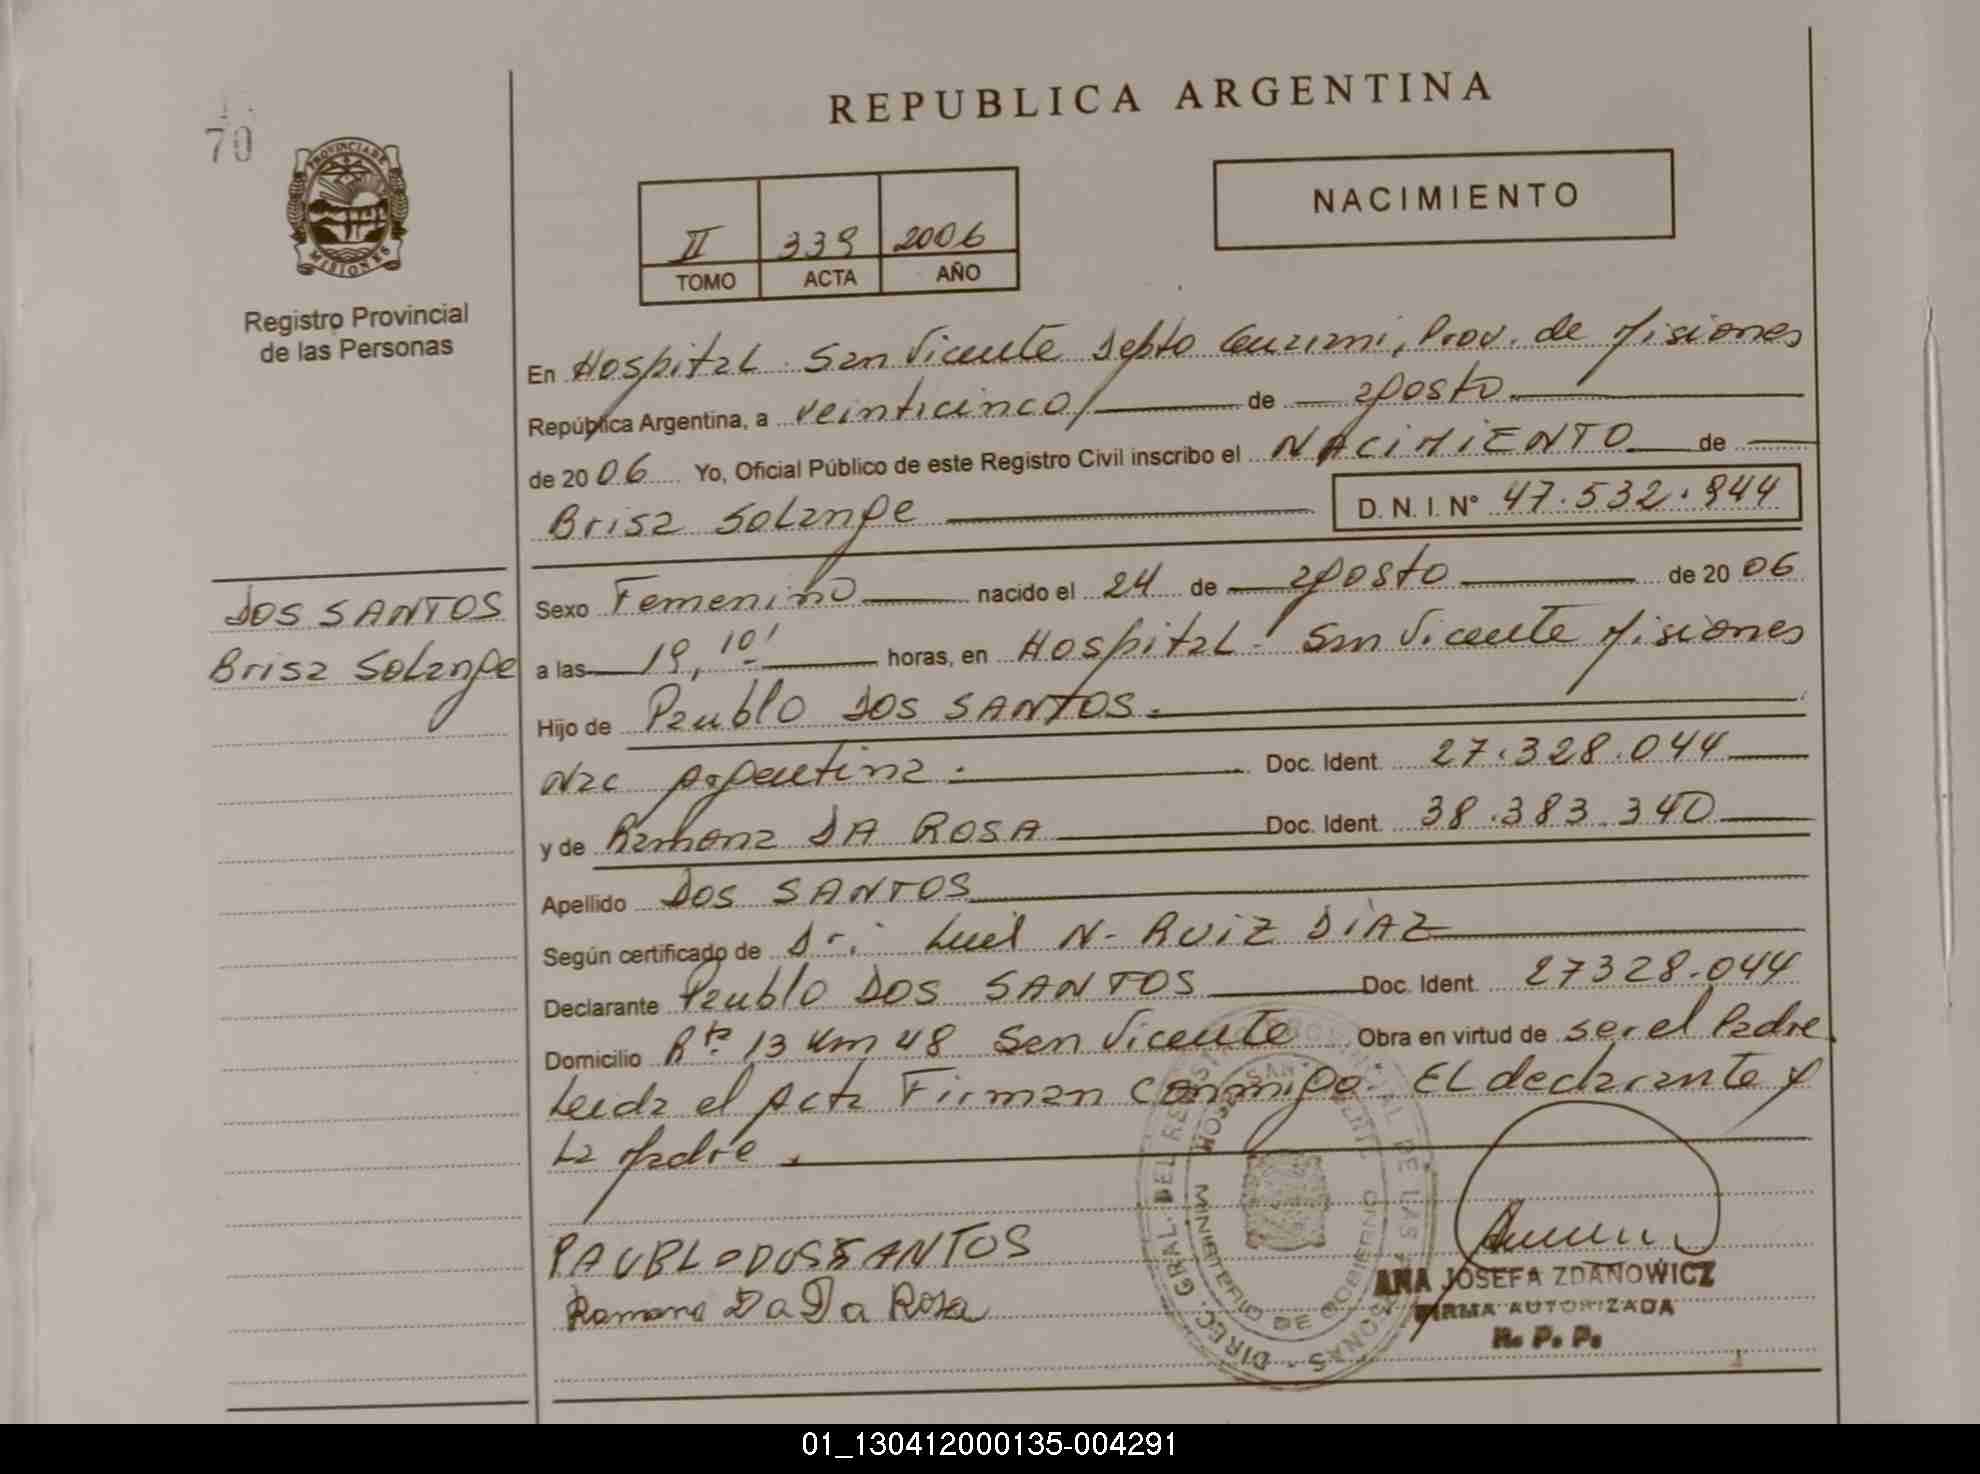 REPUBLICA ARGENTINA
70
PROVINCIA DE MISIONES
Registro Provincial
de las Personas
NACIMIENTO
II 339 2006
TOMO ACTA AÑO
En Hospital San Vicente Depto Guarani, Prov. de Misiones
República Argentina, a veinticinco de agosto
de 2006 Yo, Oficial Público de este Registro Civil inscribo el NACIMIENTO de
Brisa Solange D. N. I. N° 47.532.944
DOS SANTOS
Brisa Solange
Sexo Femenino nacido el 24 de agosto de 2006
a las 19, 10' horas, en Hospital San Vicente Misiones
Hijo de Paublo DOS SANTOS.
Nac Argentina. Doc. Ident. 27.328.044
y de Ramona DA ROSA Doc. Ident. 38.383.340
Apellido DOS SANTOS
Según certificado de Dr. N. RUIZ DIAZ
Declarante Paublo DOS SANTOS Doc. Ident. 27328.044
Domicilio Rta 13 Km 48 San Vicente Obra en virtud de ser el Padre
Leida el Acta Firman conmigo. EL declarante y
La Madre.
PAUBLO DOS SANTOS
Ramona Da Da Rosa
ANA JOSEFA ZDANOWICZ
FIRMA AUTORIZADA
R. P. P.
DIREC. GRAL. DEL REGISTRO PROVINCIAL DE LAS PERSONAS
HOSP. SAN VICENTE
MINISTERIO DE GOBIERNO
01_130412000135-004291